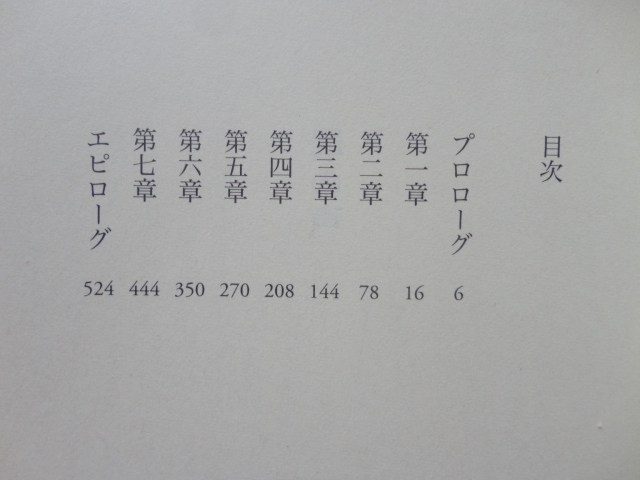 目次
プロローグ 6
第一章 16
第二章 78
第三章 144
第四章 208
第五章 270
第六章 350
第七章 444
エピローグ 524